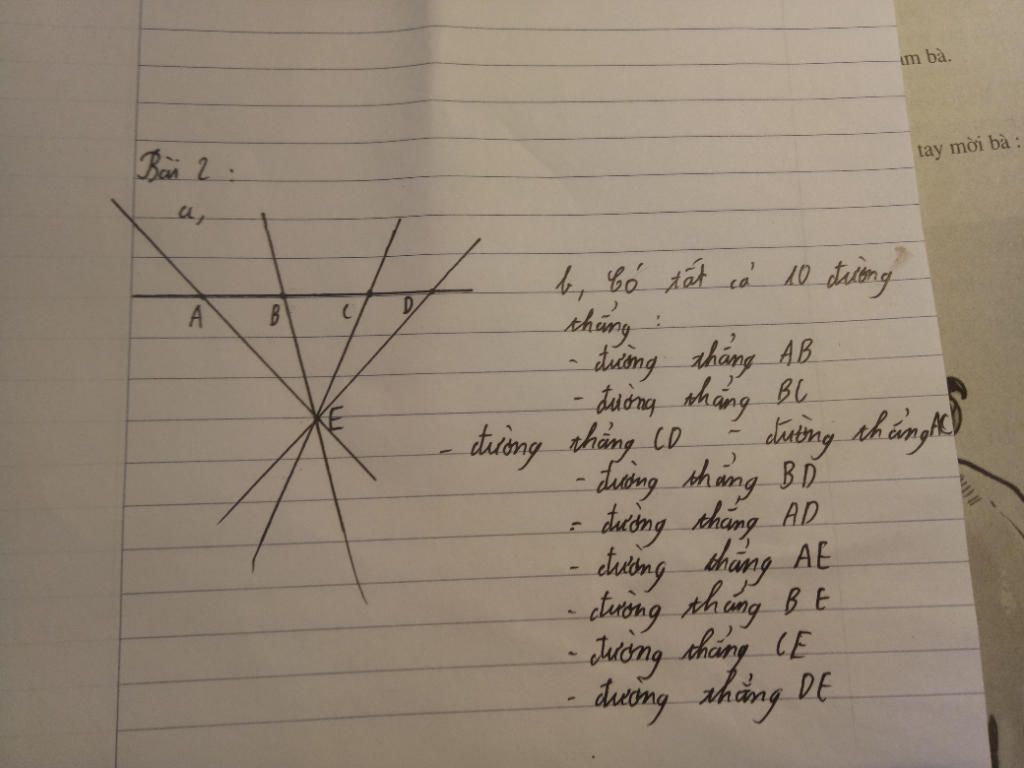 am bà.
tay mời bà :
Bài 2 :
a,
A B C D
E
b, Có tất cả 10 đường
thẳng :
- đường thẳng AB
- đường thẳng BC
- đường thẳng CD - đường thẳng AC
- đường thẳng BD
- đường thẳng AD
- đường thẳng AE
- đường thẳng BE
- đường thẳng CE
- đường thẳng DE